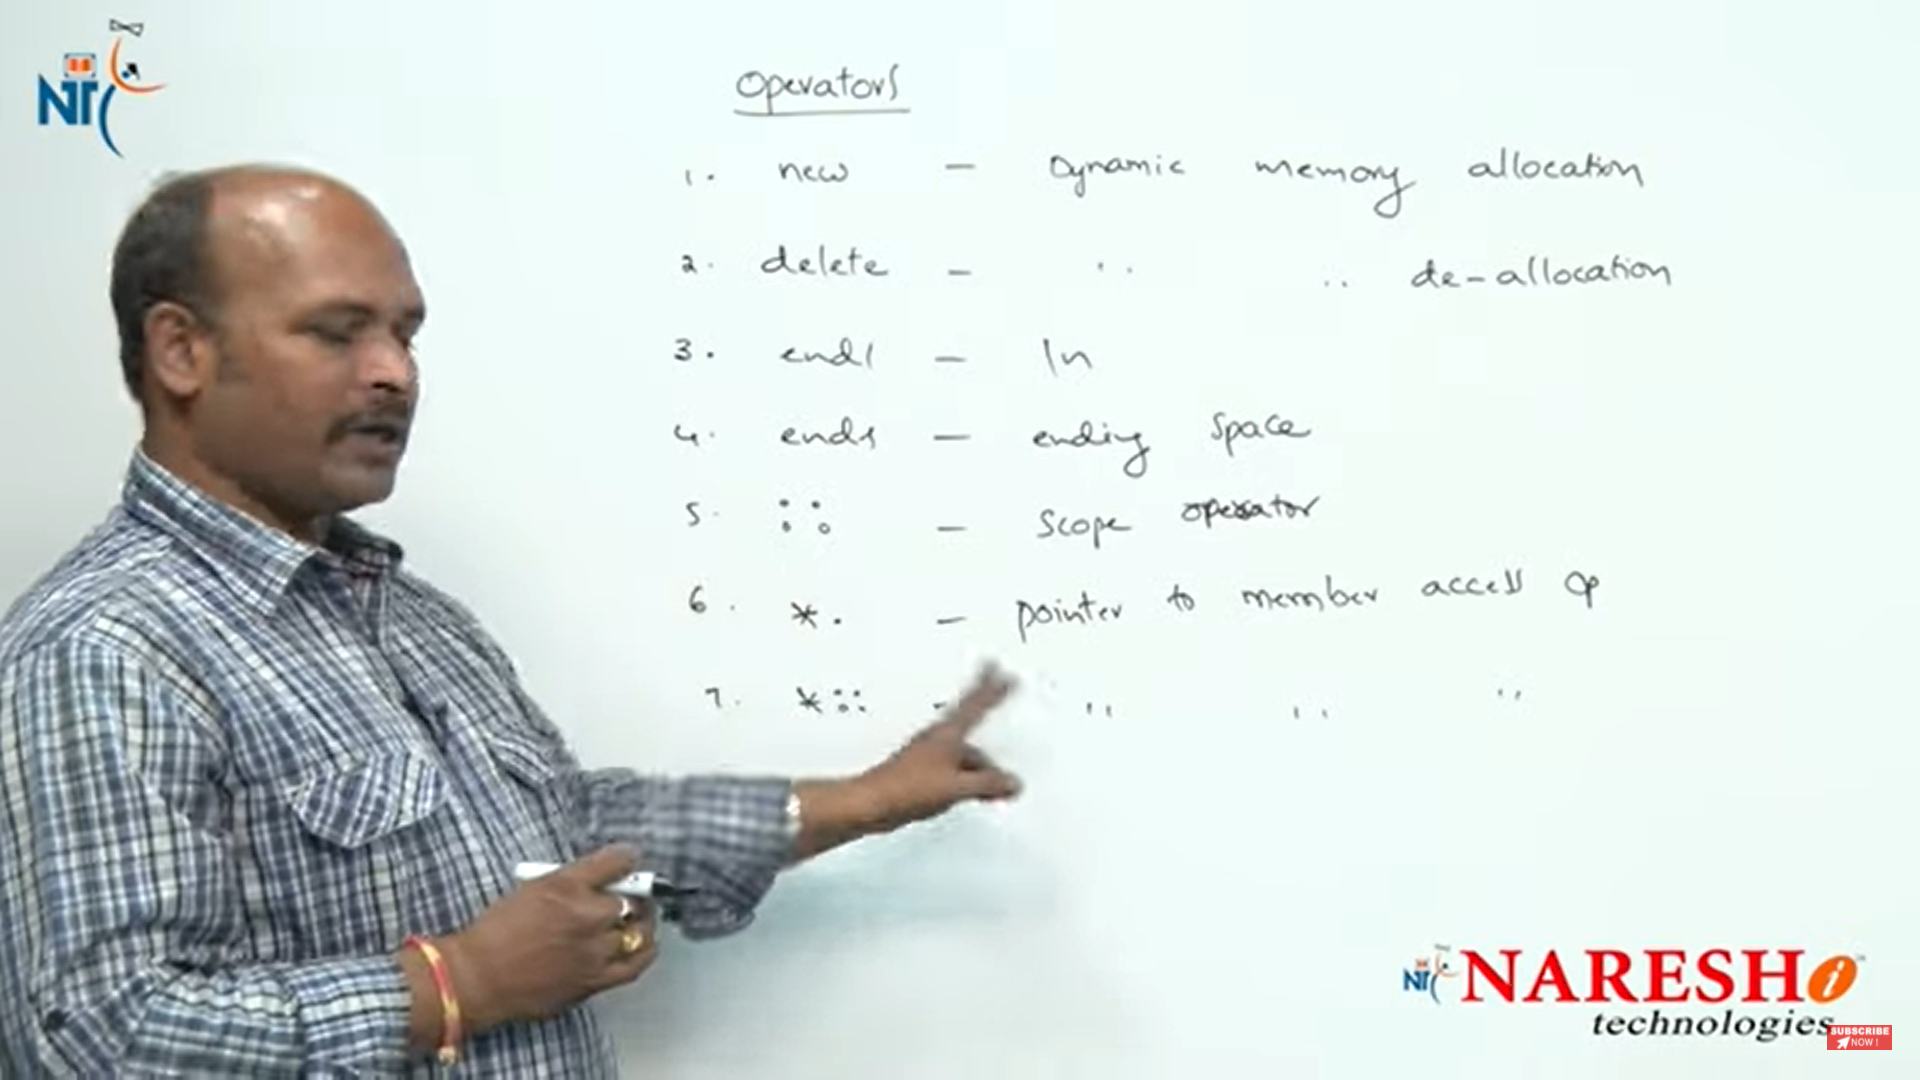 NT
Operators
1. new - Dynamic memory allocation
2. delete - " " de-allocation
3. endl - \n
4. ends - ending space
5. :: - Scope operator
6. *. - pointer to member access op
7. *:: - " " "
NT NARESH i
technologies
SUBSCRIBE
NOW !